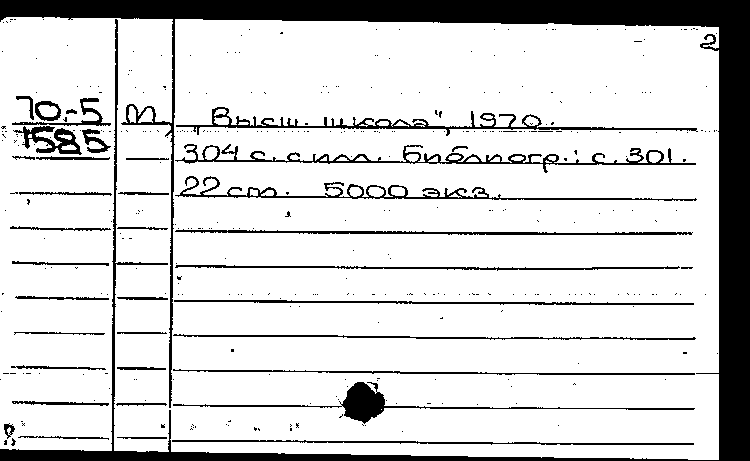 2
70-5 М., „Высш. школа", 1970.
1585 304 с. с илл. Библиогр.: с. 301.
22 см. 5000 экз.